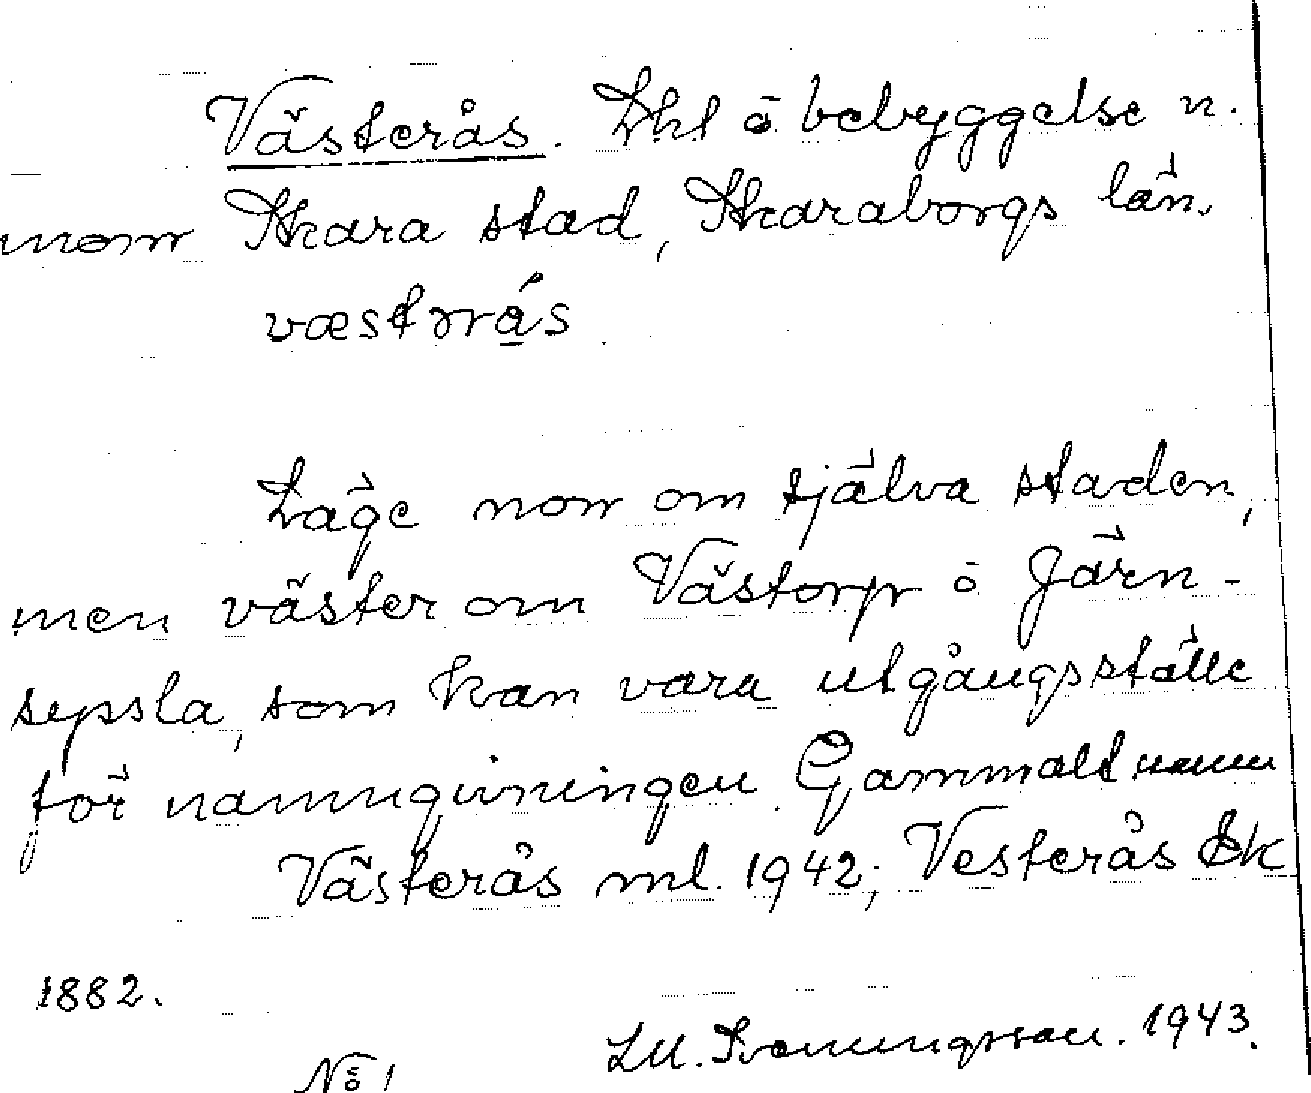 Västerås. Lht o bebyggelse n.
norr Skara stad, Skaraborgs län.
væstrrås
Läge norr om själva staden,
men väster om Västorp o Järn-
sysla, som kan vara utgångsställe
för namngivningen. Gammalt namn
Västerås ml. 1942; Vesterås Ek
1882.
Sveningsson. 1943.
No 1